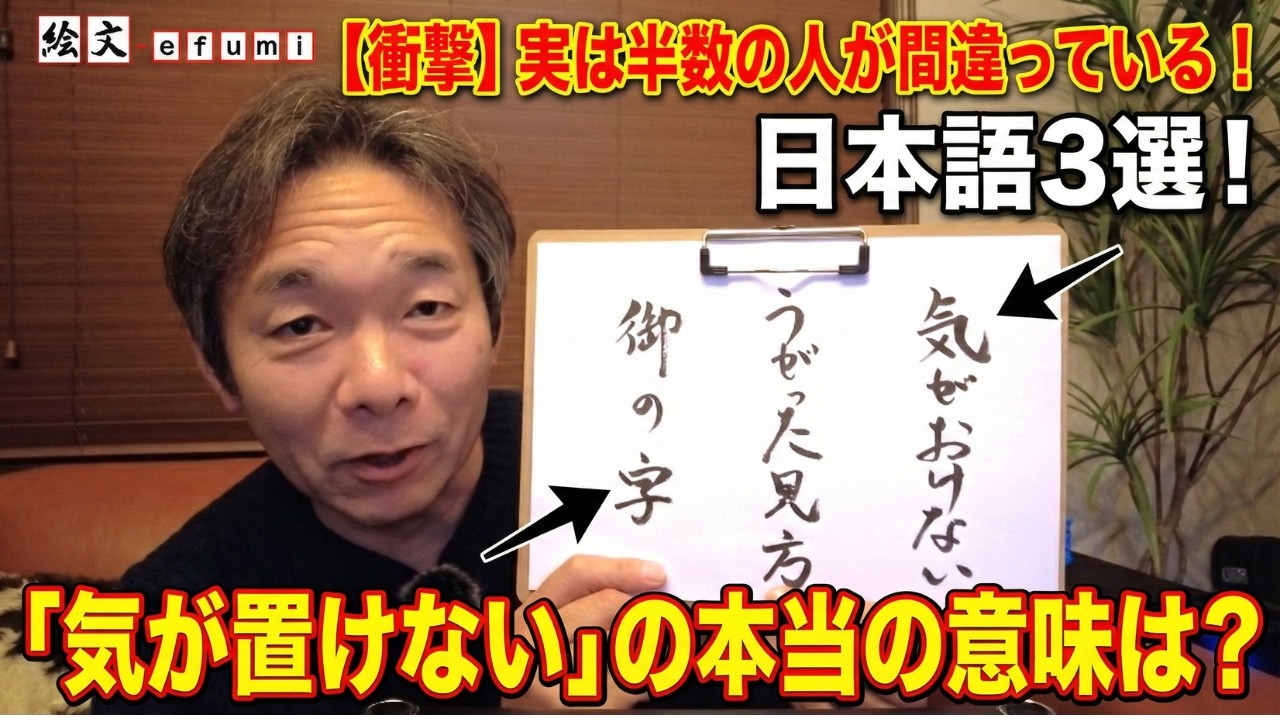 絵文-efumi
【衝撃】実は半数の人が間違っている！
日本語3選！
気がおけない
うがった見方
御の字
「気が置けない」の本当の意味は？